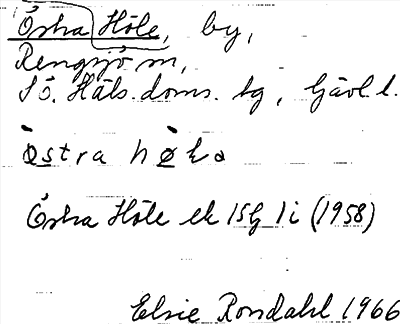 Östra Höle, by,
Rengsjö sn,
Sö. Häls. doms. tg, Gävl. l.
östra hølɑ
Östra Höle ek 15G 1i (1958)
Elsie Rondahl 1966